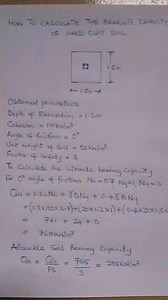 HOW TO CALCULATE THE BEARING CAPACITY
OF HARD CLAY SOIL
1.2m
1.2m
Obtained parameters
Depth of Excavation = 1.2m
Cohesion = 100kN/m²
Angle of friction = 0°
Unit weight of Soil = 20kN/m³
Factor of safety = 3
To calculate the ultimate bearing Capacity
For 0° angle of friction Nc = 5.7 Nq = 1, Nγ = 0
Qu = 1.3CNc + γDNq + 0.4γBNγ
= (1.3x100x5.7) + (20x1.2x1) + (0.4x20x1.2x0)
= 741 + 24 + 0
= 765kN/m²
Allowable Soil Bearing Capacity
Qa = Qu/FS = 765/3 = 255kN/m²